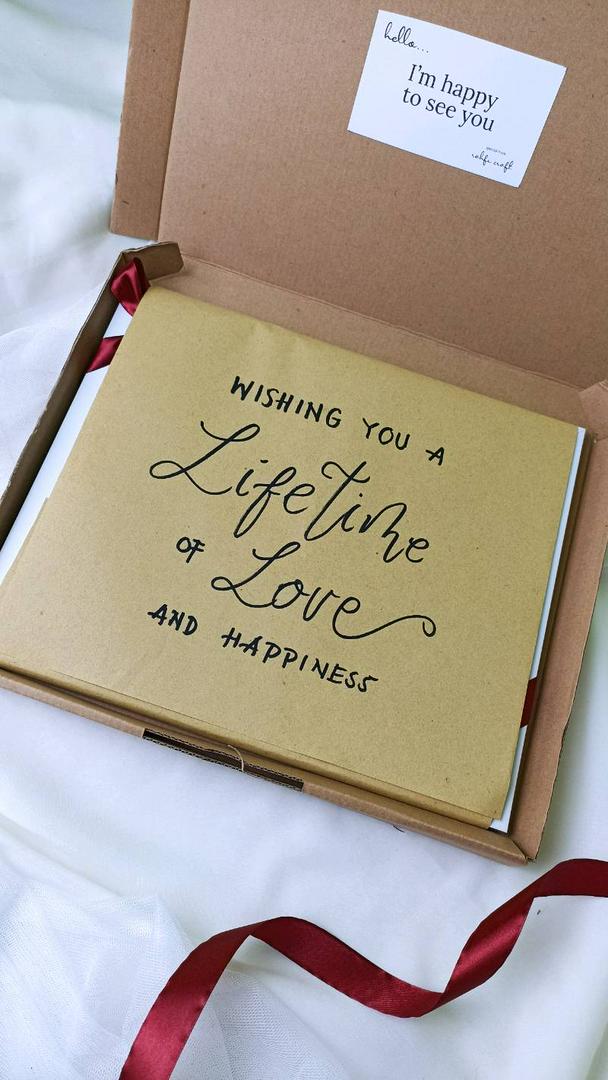 hello...
I'm happy
to see you
WISHING YOU A
LifeTime
OF Love
AND HAPPINESS